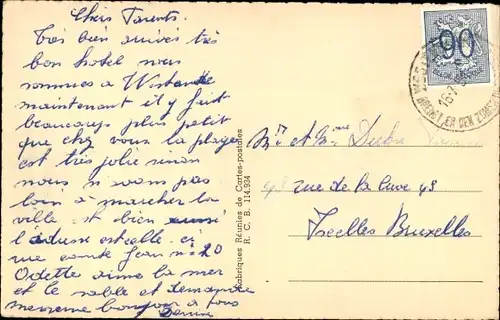 Chers Parents.
Très bien arrivés très
bon hotel nous
sommes a Westende
maintenant il y fait
beaucoup plus petit
que chez vous la plage
est très jolie
nous n'avons pas
loin à marcher la
ville est bien aussi
l'adresse est celle ci
rue comte Jean n 20
Odette aime la mer
et le sable et demande
bonjour a tous
Denise
Fabriques Réunies de Cartes-postales
R. C. B. 114.934
90
16-7
Mr et Mme Dubu
48 rue de la Cuve 48
Ixelles Bruxelles